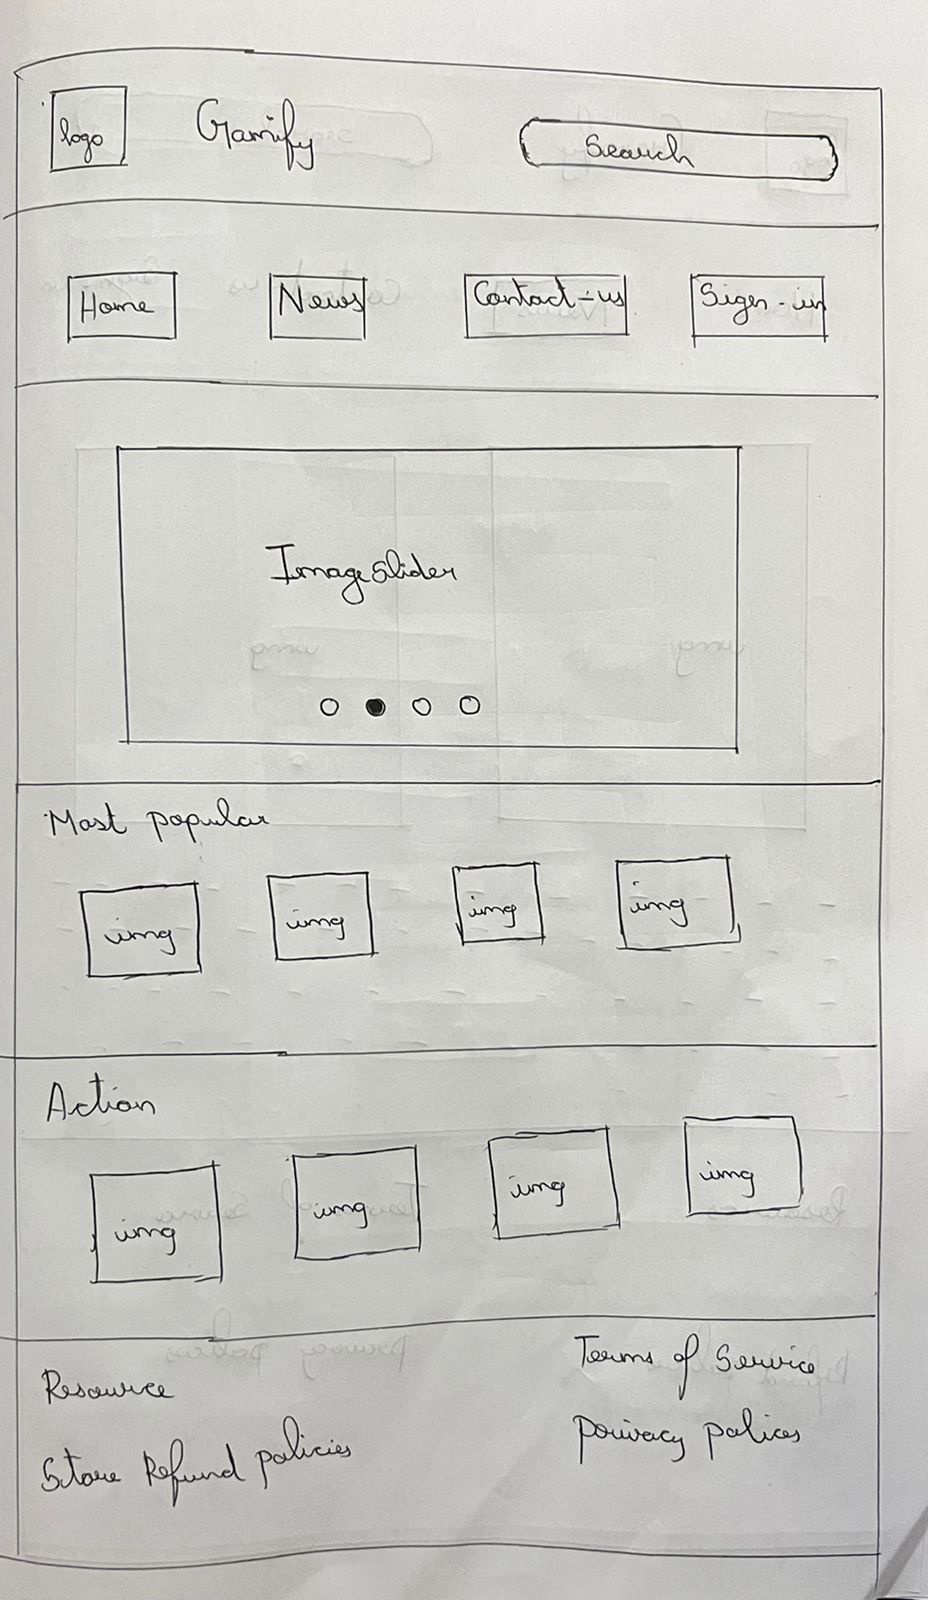 logo Gamify Search
Home News Contact-us Sign-in
Image Slider
Most popular
img img img img
Action
img img img img
Resource Terms of Service
Store Refund policies privacy polices